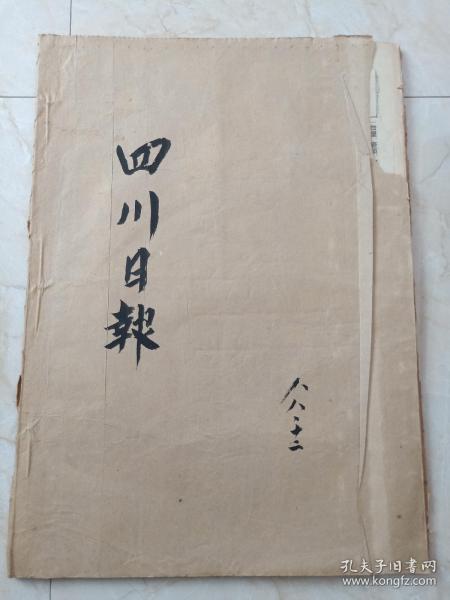 四川日報
八八·十二
孔夫子旧书网
www.kongfz.com